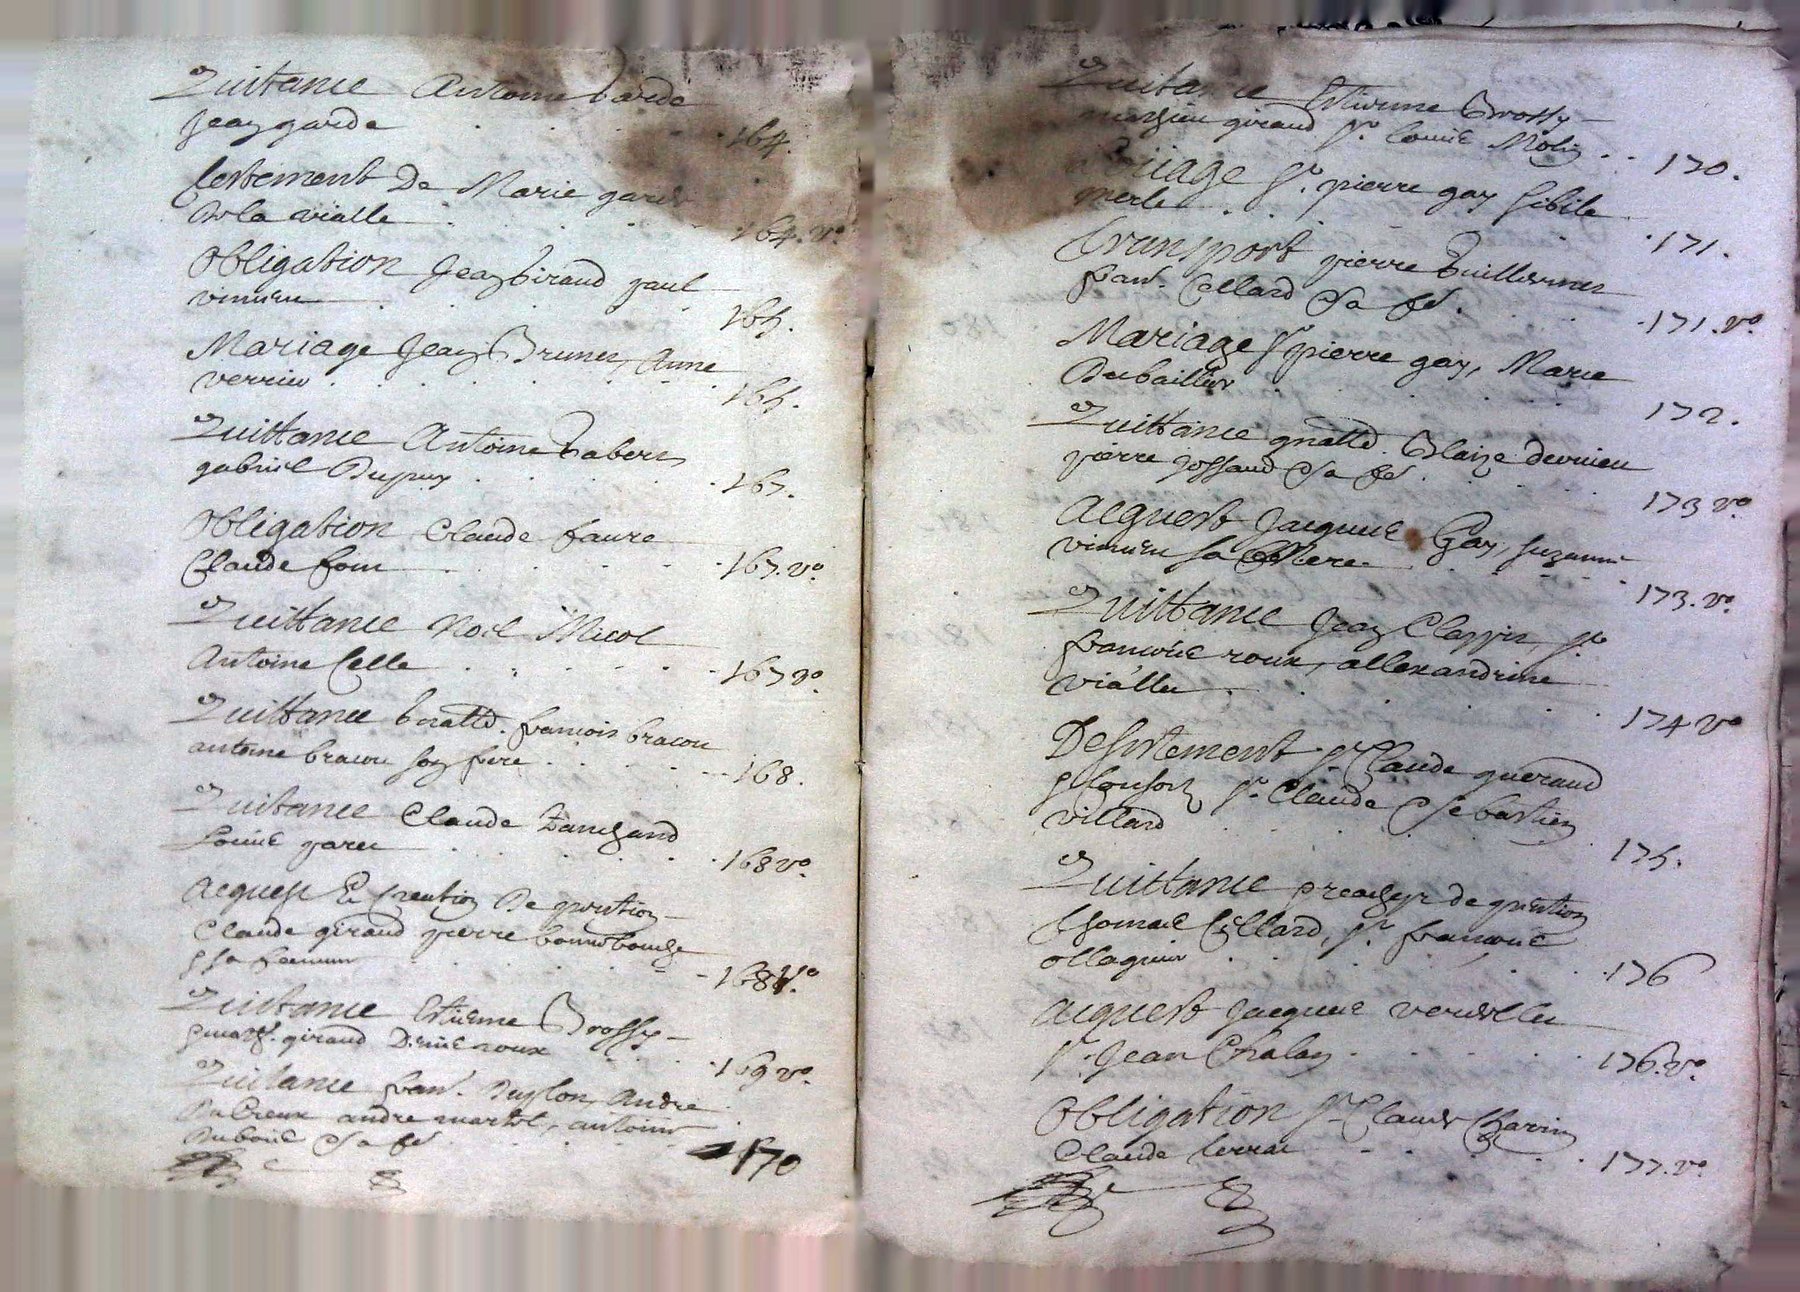 Quittance Antoine barde
Jean garde . . . . 164.
testement De Marie garde
De la vialle . . . . 164. vº.
Obligation Jean Giraud paul
vimieu . . . . 165.
Mariage Jean Brunen, Anne
verrieu . . . . 165.
Quittance Antoine Tabers
gabriel Dupuy . . . . 167.
Obligation Claude faure
Claude four . . . . 167. vº.
Quittance Noel Micol
Antoine Celle . . . . 167 vº.
Quittance françois bracou
antoine bracou son frere . . . . 168.
Quittance Claude
Louise . . . . 168 vº.
Acquest Et De question
Claude giraud pierre bonnebouche
& sa femme . . . . 168 vº.
Quittance Etienne Brossy
giraud Denise roux . . . . 169 vº.
Quittance fran. andré
andré martel, antoine
Duboüe . . . . 170
Quitance Etienne Brossy
mathieu giraud Sr. Louise Molin . . 170.
Mariage Sr. pierre gay Sibile
merle . . . . 171.
transport pierre Guillermen
fran. Collard . . . . 171. vº.
Mariage Sr pierre gay, Marie
Dubaillier . . . . 172.
Quittance Blaize devrieu
pierre . . . . 173 vº.
Acquest Jacques Gay, suzanne
vimieu sa Mere . . . . 173. vº.
Quittance Jean Clappier, Sr.
françois roux, allexandrine
viallet . . . . 174 vº
Desistement Sr. Claude guerand
& Consort Sr. Claude Sebastien
villard . . . . 175.
Quittance de question
thomas Cillard, Sr. françois
ollagnier . . . . 176
Acquest Jacques
Sr. Jean Chalan . . . . 176. vº.
Obligation Sr. Claude Charvin
Claude terrat . . . . 177. vº.